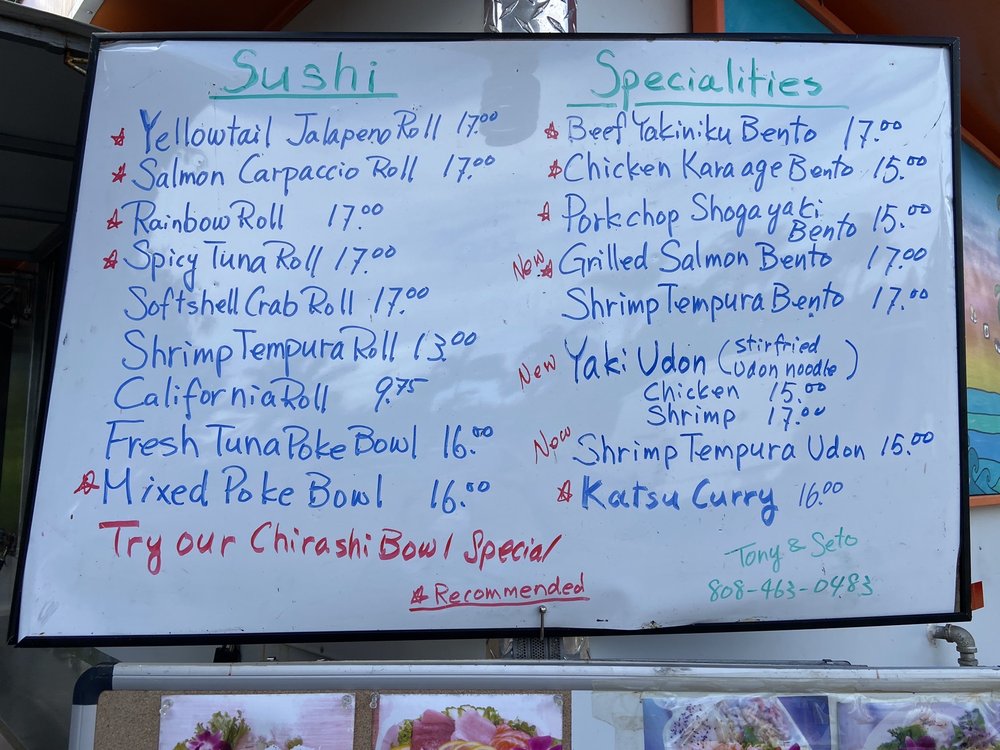 Sushi
☆ Yellowtail Jalapeno Roll 17.00
☆ Salmon Carpaccio Roll 17.00
☆ Rainbow Roll 17.00
☆ Spicy Tuna Roll 17.00
Softshell Crab Roll 17.00
Shrimp Tempura Roll 13.00
California Roll 9.75
Fresh Tuna Poke Bowl 16.00
☆ Mixed Poke Bowl 16.00
Try our Chirashi Bowl Special
☆ Recommended
Specialities
☆ Beef Yakiniku Bento 17.00
☆ Chicken Karaage Bento 15.00
☆ Porkchop Shogayaki
Bento 15.00
New ☆ Grilled Salmon Bento 17.00
Shrimp Tempura Bento 17.00
New Yaki Udon (stirfried
udon noodle)
Chicken 15.00
Shrimp 17.00
New Shrimp Tempura Udon 15.00
☆ Katsu Curry 16.00
Tony & Seto
808-463-0483